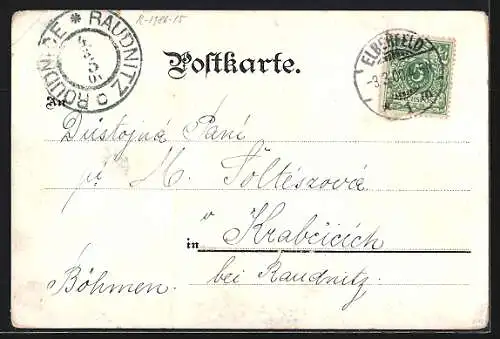 R-1786-15
RAUDNITZ * ROUDNICE
Postkarte.
ELBERFELD
5
An
Důstojná Paní
M. Šoltészová
v
in Krabčicích
bei Raudnitz.
Böhmen.